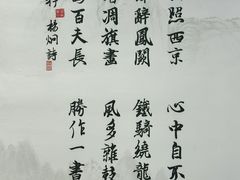 照西京 心中自不
辭鳳闕 鐵騎繞龍
暗凋旗畫 風多雜鼓
為百夫長 勝作一書
行 楊炯詩